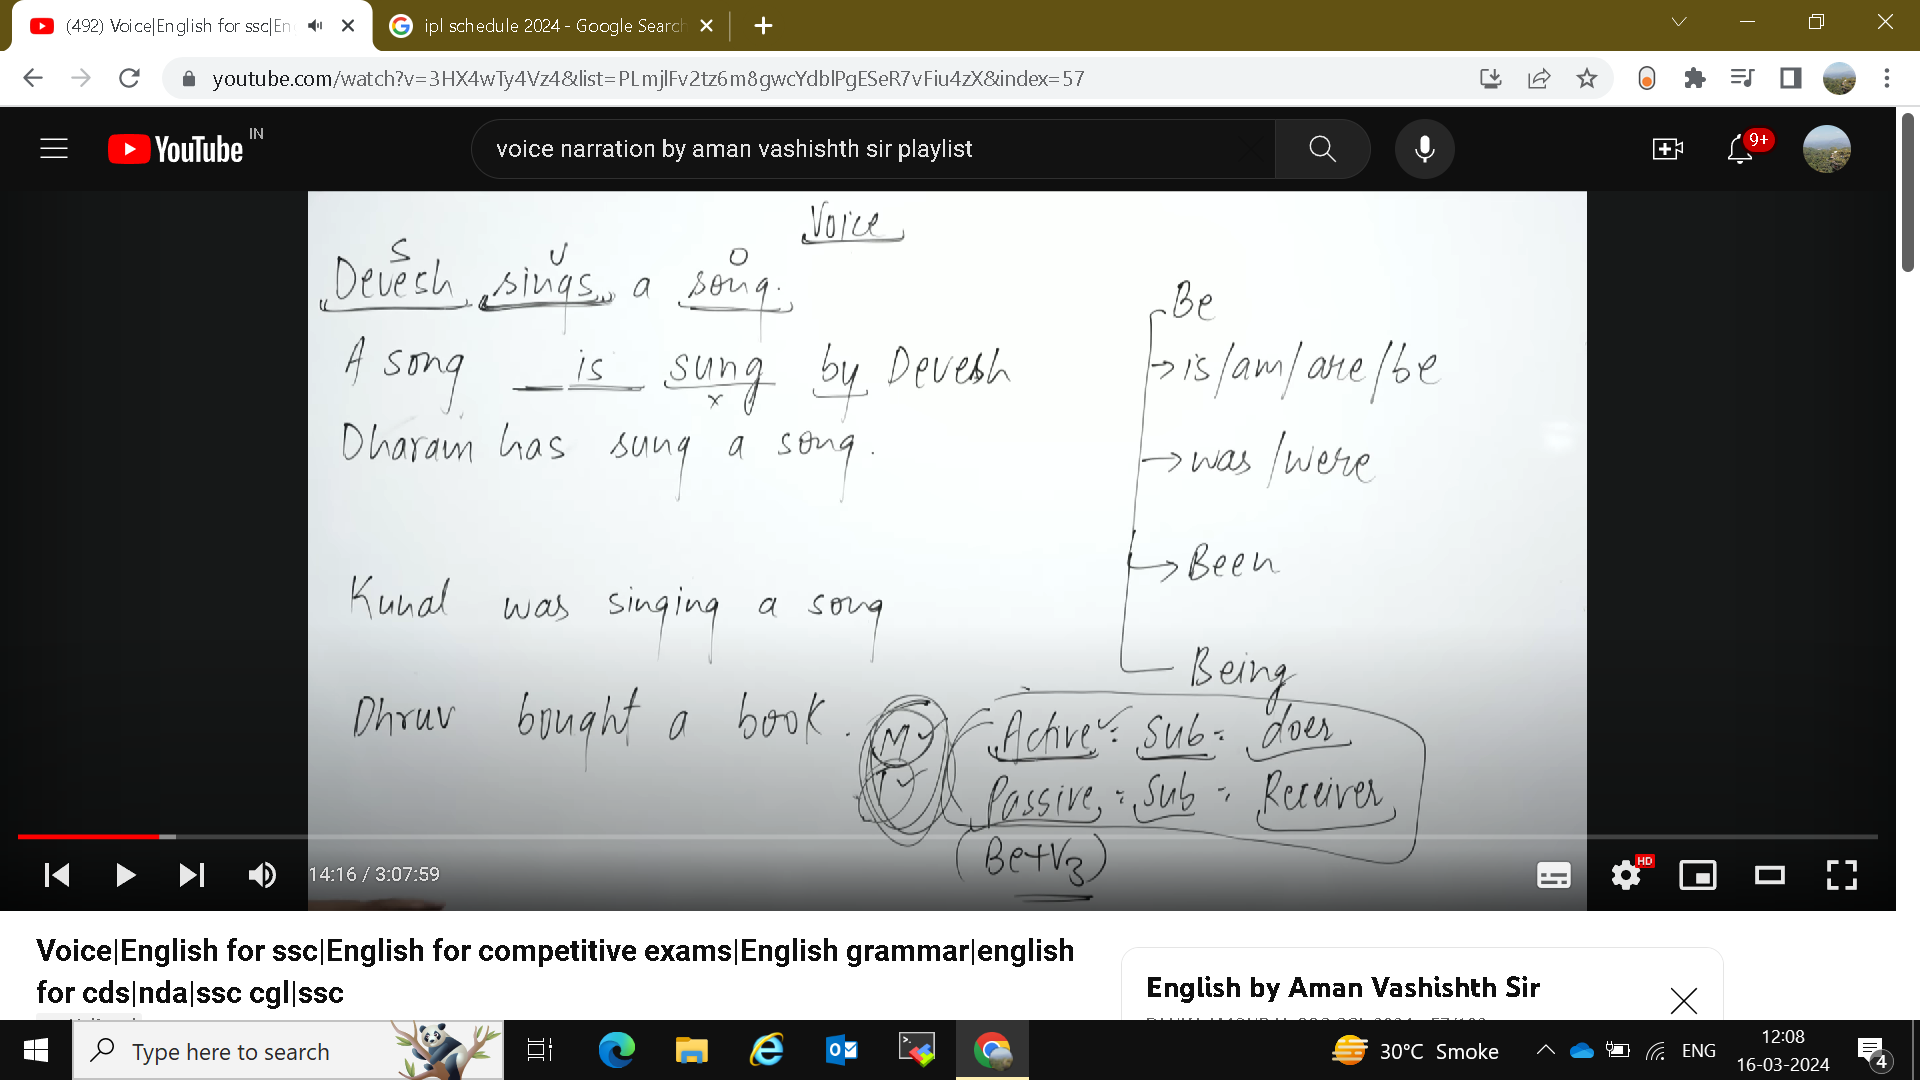 (492) Voice|English for ssc|En
ipl schedule 2024 - Google Search
youtube.com/watch?v=3HX4wTy4Vz4&list=PLmjlFv2tz6m8gwcYdblPgESeR7vFiu4zX&index=57
YouTube IN
voice narration by aman vashishth sir playlist
9+
Voice
S V O
Devesh sings a song.
A song is sung by Devesh
x
Dharam has sung a song.
Kunal was singing a song
Dhruv bought a book.
Be
is/am/are/be
was/were
Been
Being
M
Active = Sub = doer
Passive = Sub = Receiver
(Be+V3)
14:16 / 3:07:59
HD
Voice|English for ssc|English for competitive exams|English grammar|english
for cds|nda|ssc cgl|ssc
English by Aman Vashishth Sir
Type here to search
30°C Smoke
ENG
12:08
16-03-2024
4